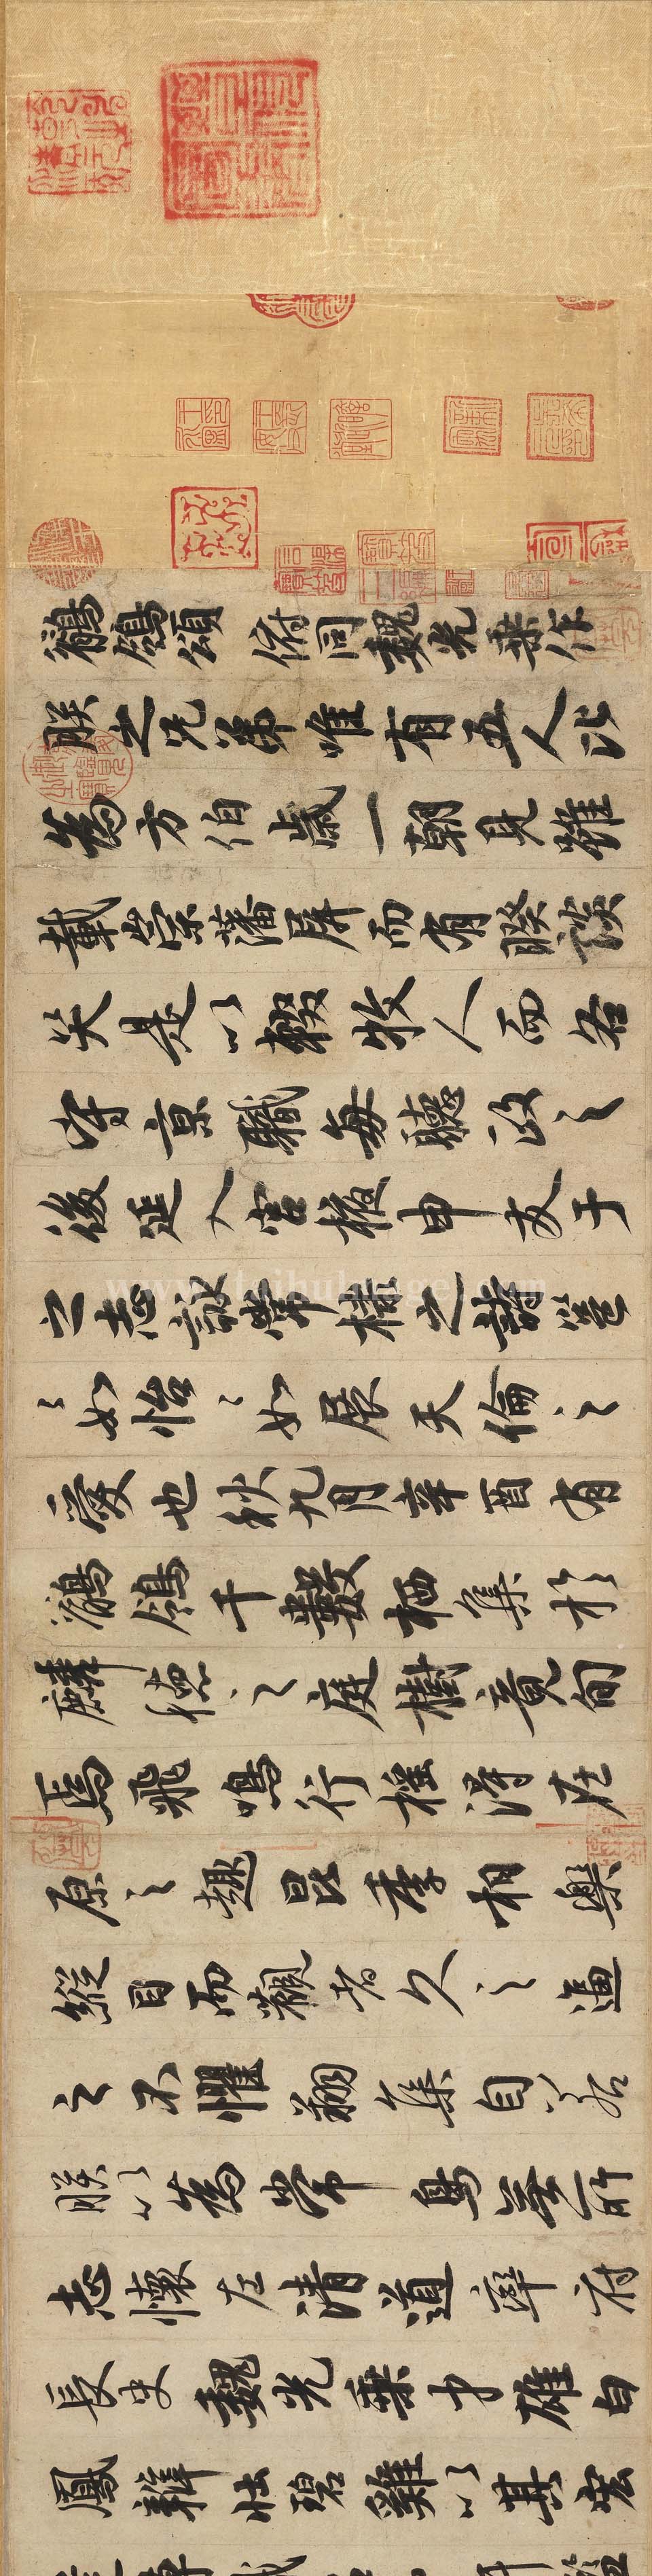 鶺鴒頌 俯同魏光乘作
朕之兄弟唯有五人比
為方伯歲一朝見雖
載崇藩屏而有睽談
笑是以輟牧人而各
守京職每聽政之
後延入宮掖申友于
之志詠棠棣之詩邕
邕如怡怡如展天倫之
愛也秋九月辛酉有
鶺鴒千數栖集於
麟德之庭樹竟旬
焉飛鳴行搖得在
原之趣昆季相樂
縱目而觀者久之逼
之不懼翔集自若
朕以為常鳥無所
志懷左清道率府
長史魏光乘才雄白
鳳辯壯碧雞以其宏
www.taihuimage.com